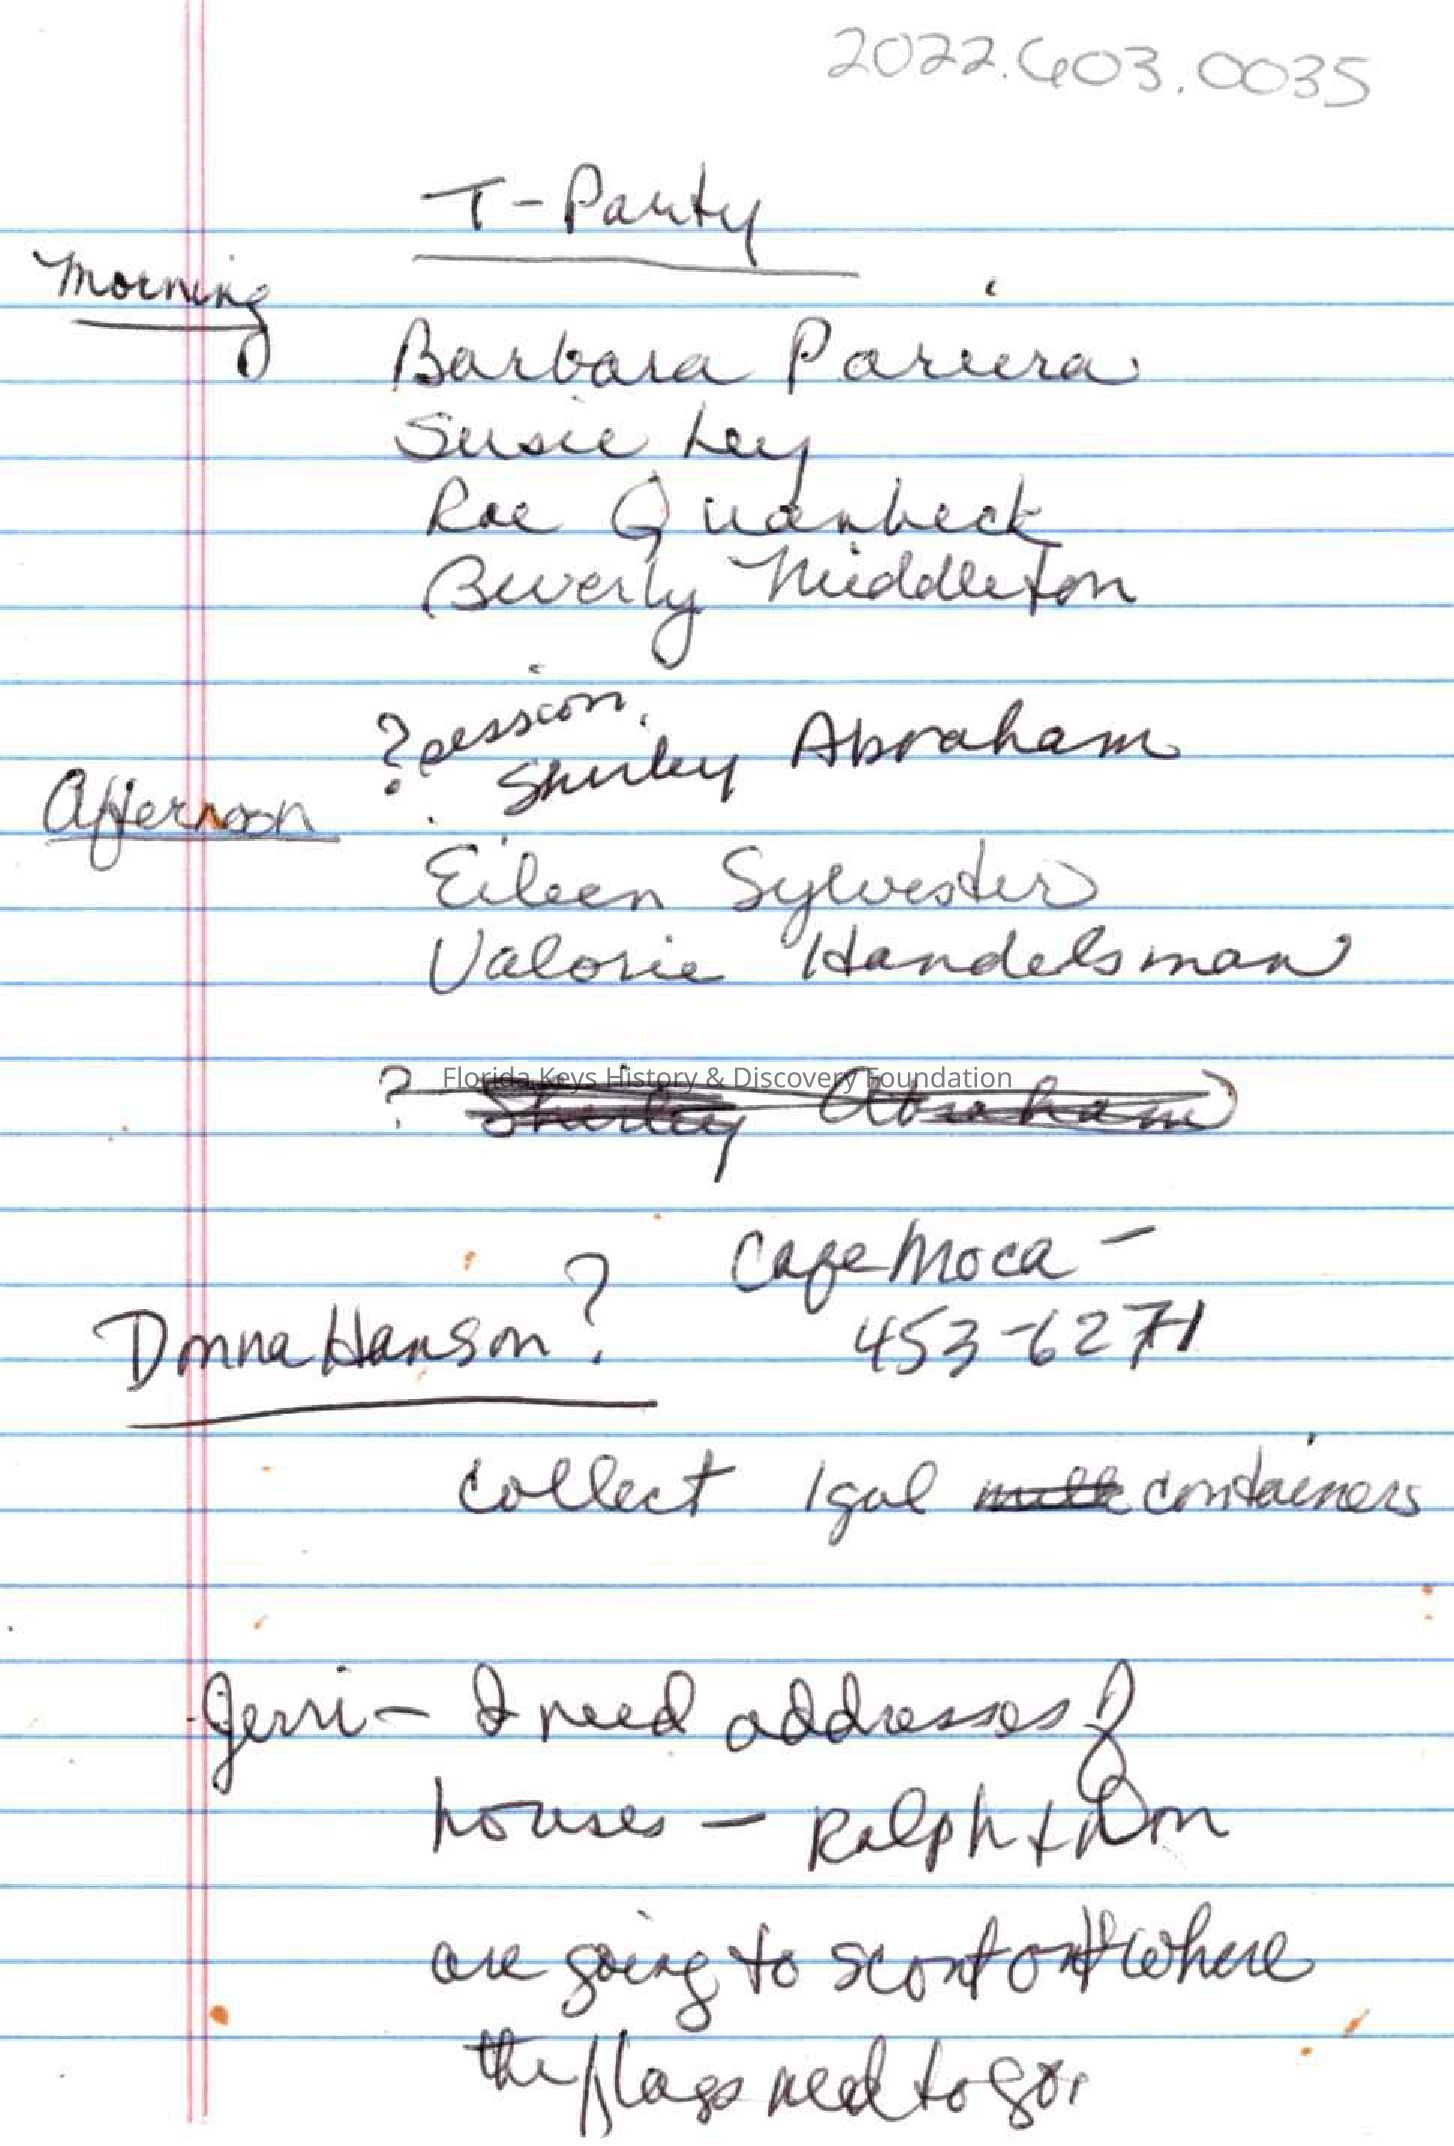 2022.603.0035
T-Party
Morning
Barbara Pariera
Susie Ley
Rae Quanbeck
Beverly Middleton
? session.
Shirley Abraham
Afternoon
Eileen Sylvester
Valorie Handelsman
Florida Keys History & Discovery Foundation
? Shirley Abraham
Cafe Moca -
Donna Hanson?
453-6271
collect 1gal milk containers
Jerri - I need addresses of
houses - Ralph + Don
are going to scout out where
the flags need to go.